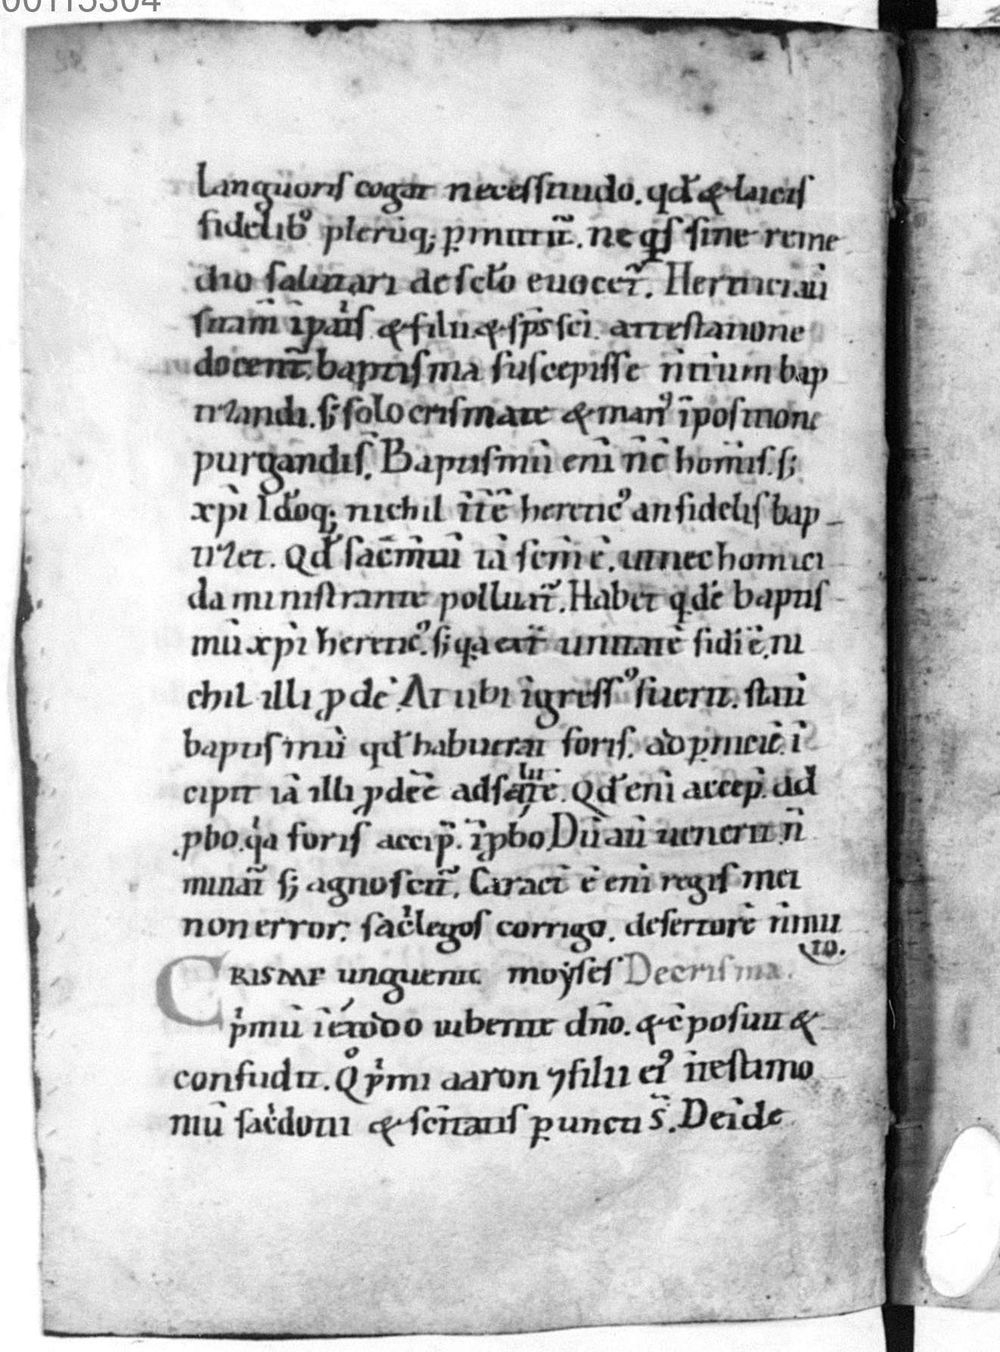 00115304
languoris cogat necessitudo. qd̄ & laicis
fidelib⁹ plerūq; ꝑmittit̄. ne q̄s sine reme
dio salutari de sc̄lo euocet̄. Heretici aū
si tam̄ ī patͥs & filii & sp̄s sc̄i attestatione
docent̄ baptisma suscepisse n̄ iterum bap
tizandi. s; solo crismate & man⁹ īpositione
purgandis. Baptismū enī n̄ ē hom̄is. s;
xp̄i Idōq; nichil īt̄ē heretic⁹ an fidelis bap
tizet. Qd̄ sac̄m̄tū tā sc̄m̄ ē. ut nec homici
da ministrante polluat̄. Habet qͥdē baptis
mū xp̄i heretic⁹. s; qͥa extͣ unitatē fidi ē, ni
chil illi ꝓdē At ubi īgress⁹ fuerit. statī
baptismū qd̄ habuerat foris. ad ꝑniciē. ī
cipit iā illi ꝓdēē ad salutē. Qd̄ enī accep̄. ad
pbo. qͥa foris accip̄. īꝓbo Dū aū uenerit. n̄
minͣt̄ s; agnoscit̄. Caract̄ ē enī regis mei
non error: sac̄legos corrigo. desertorē n̄ mu
to.
CRISME unguentū moyses De crisma.
pͥmū ī exodo iubente dn̄o. & c̄posuit &
confudit. Qͦ pͥmi aaron ⁊ filii ei⁹ ī testimo
niū sac̄dotii & sc̄itatis ꝑuncti s̄. Deīde